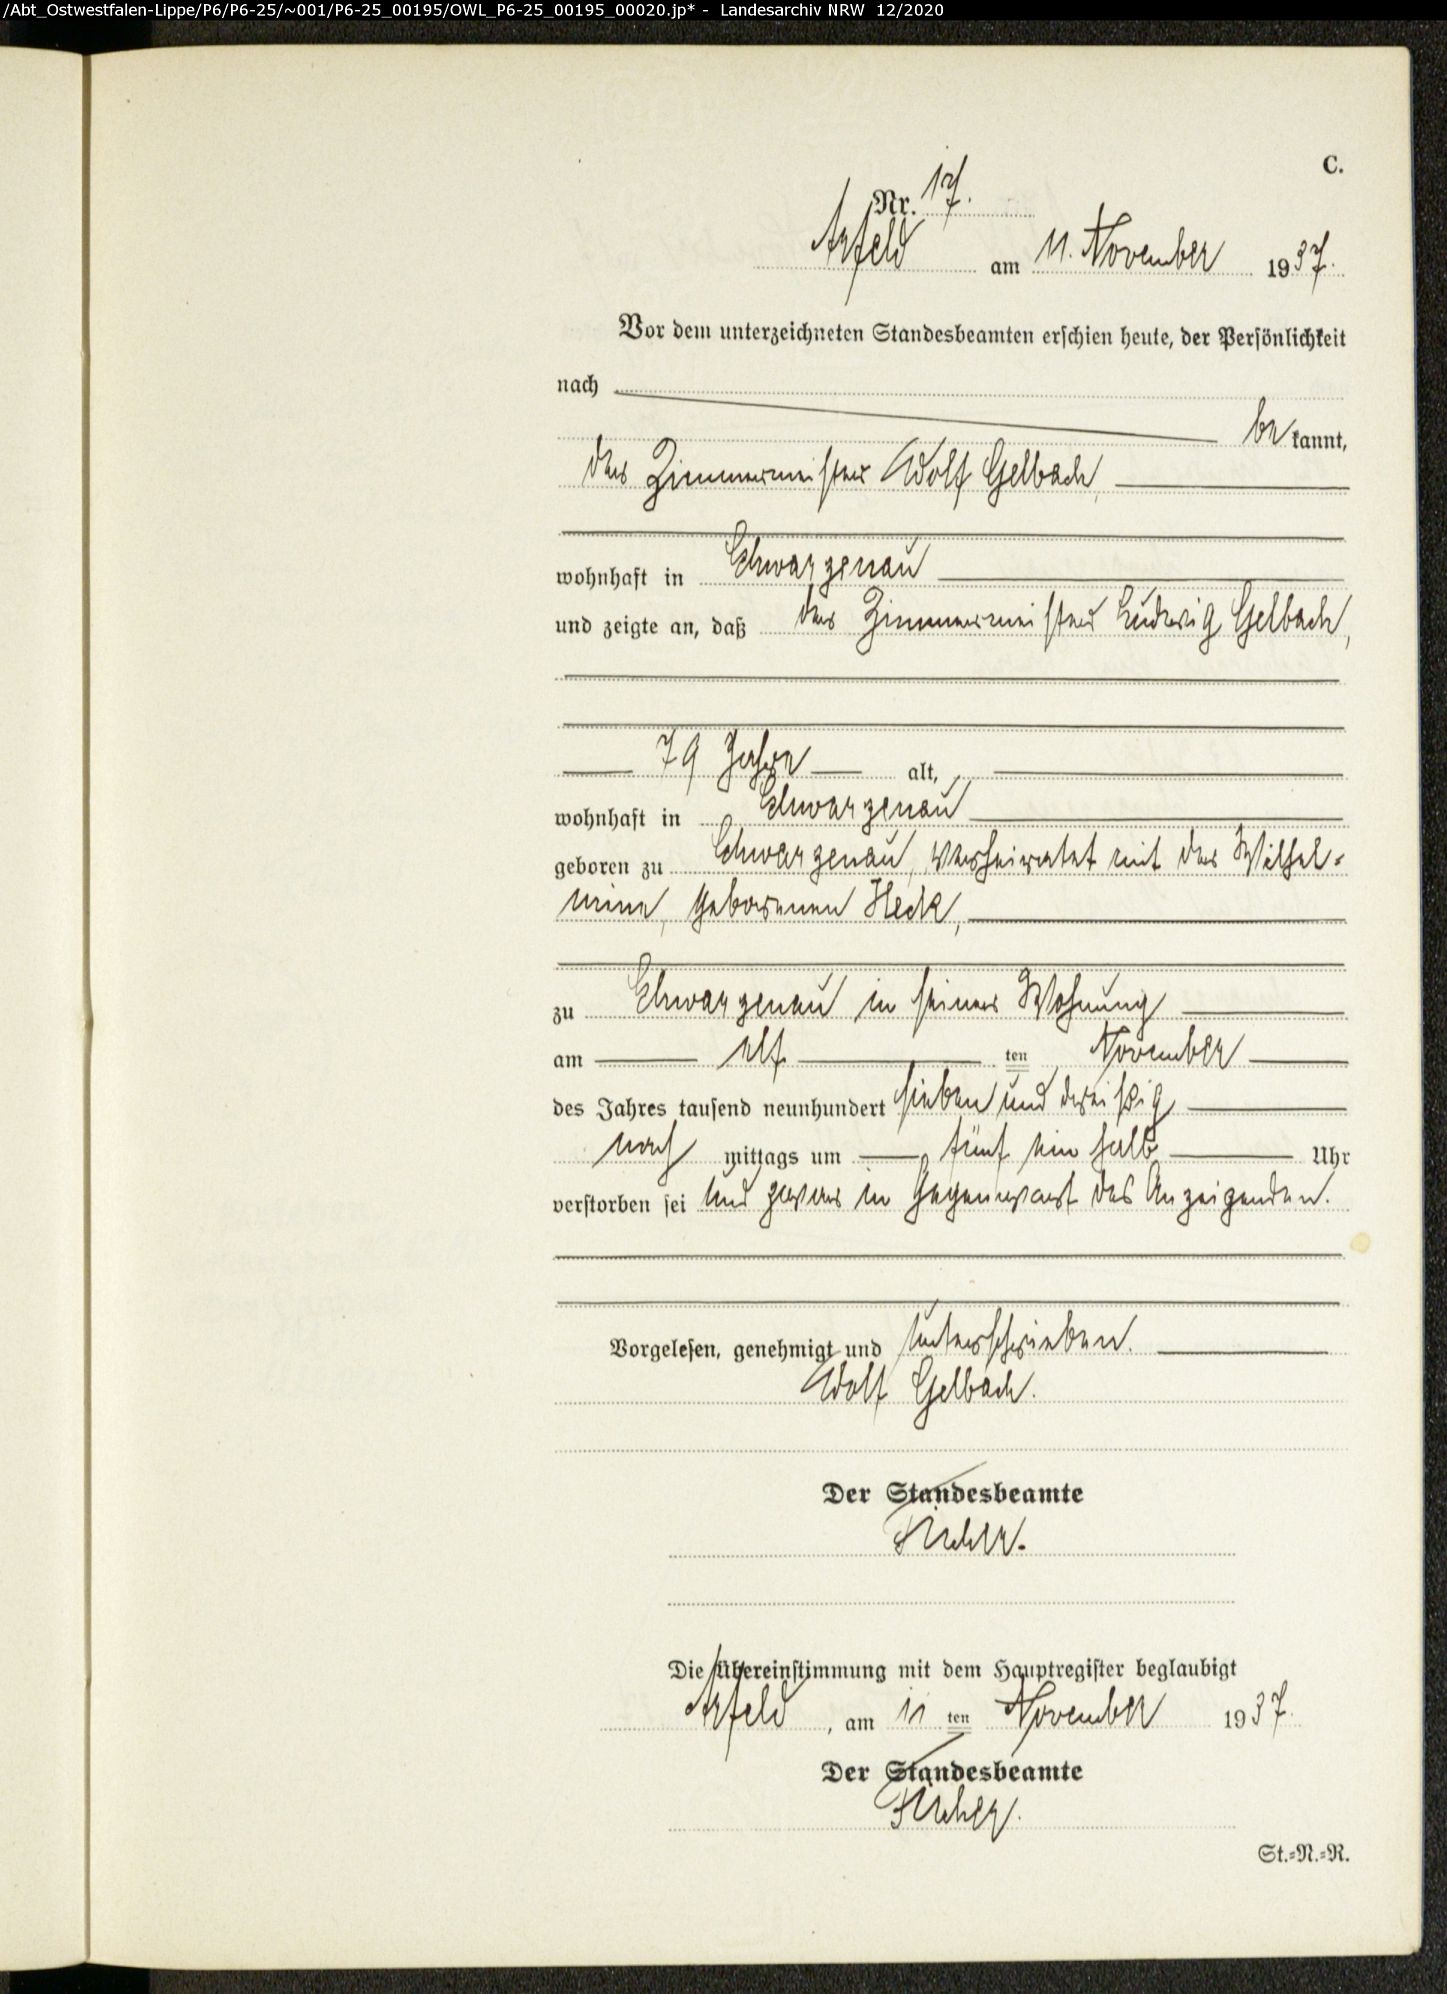 /Abt_Ostwestfalen-Lippe/P6/P6-25/~001/P6-25_00195/OWL_P6-25_00195_00020.jp* - Landesarchiv NRW 12/2020
C.
Nr. 17.
Arfeld am 11. November 1937.
Vor dem unterzeichneten Standesbeamten erschien heute, der Persönlichkeit
nach
bekannt,
der Zimmermeister Adolf Gelbach,
wohnhaft in Schwarzenau
und zeigte an, daß der Zimmermeister Ludwig Gelbach,
79 Jahre alt,
wohnhaft in Schwarzenau
geboren zu Schwarzenau, verheiratet mit der Wilhel-
mine, geborenen Heck,
zu Schwarzenau in seiner Wohnung
am elf ten November
des Jahres tausend neunhundert sieben und dreißig
nach mittags um fünf ein halb Uhr
verstorben sei und zwar in Gegenwart des Anzeigenden.
Vorgelesen, genehmigt und unterschrieben.
Adolf Gelbach.
Der Standesbeamte
Die Übereinstimmung mit dem Hauptregister beglaubigt
Arfeld, am 11 ten November 1937.
Der Standesbeamte
St.=N.=R.